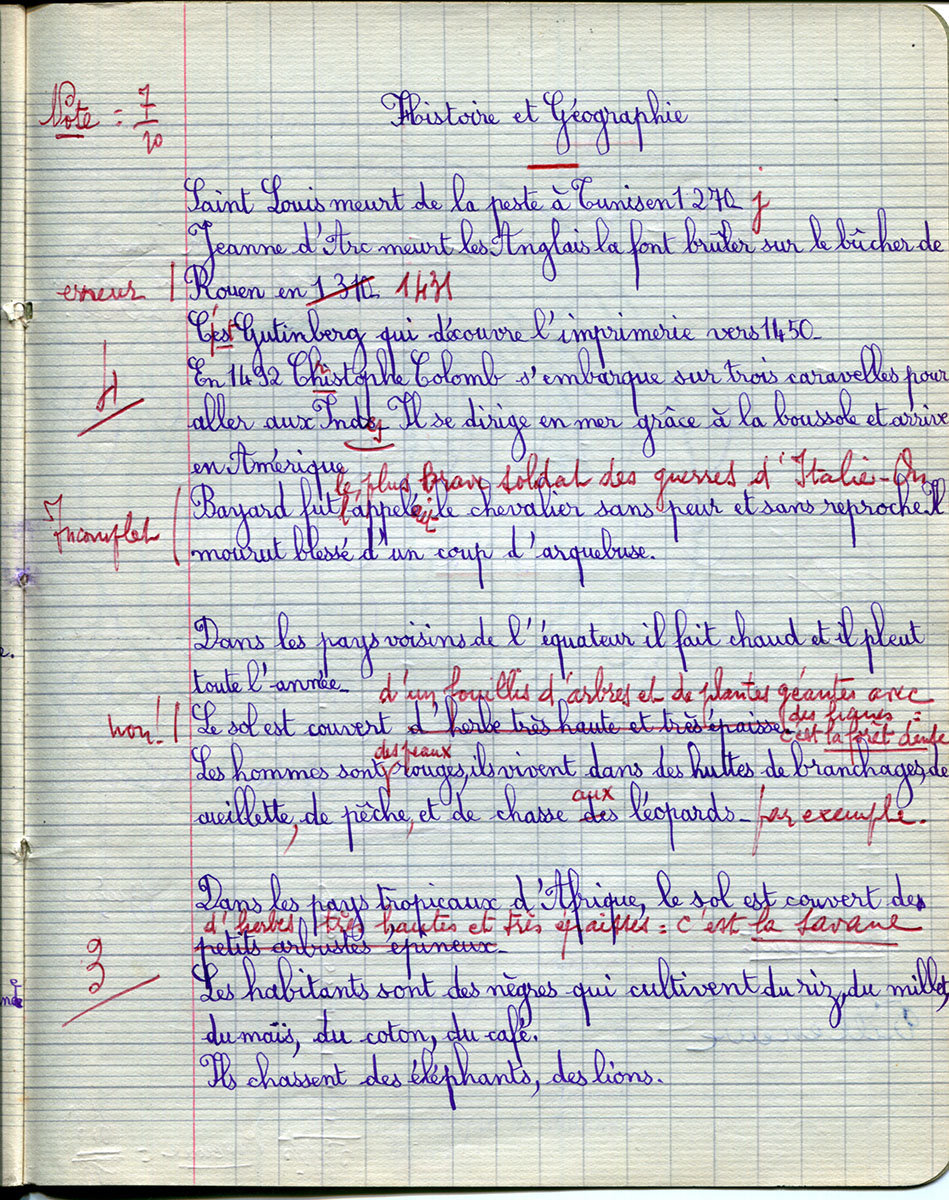 Note = 7/20
Histoire et Géographie
Saint Louis meurt de la peste à Tunis en 1270 j
Jeanne d'Arc meurt les Anglais la font brûler sur le bûcher de
erreur Rouen en 1310 1431
C'est Gutinberg qui découvre l'imprimerie vers 1450.
En 1492 Christophe Colomb s'embarque sur trois caravelles pour
4
aller aux Indes Il se dirige en mer grâce à la boussole et arrive
en Amérique
le plus brave soldat des guerres d'Italie - On
Incomplet Bayard fut l'appelait le chevalier sans peur et sans reproche. Il
mourut blessé d'un coup d'arquebuse.
Dans les pays voisins de l'équateur il fait chaud et il pleut
toute l'année.
d'un fouillis d'arbres et de plantes géantes avec
non! Le sol est couvert d'herbe très haute et très épaisse.
des lianes =
c'est la forêt dense
des peaux
Les hommes sont rouges, ils vivent dans des huttes de branchages, de
aux
cueillette, de pêche, et de chasse des léopards - par exemple.
Dans les pays tropicaux d'Afrique, le sol est couvert des
d'herbes très hautes et très épaisses = c'est la savane
petits arbustes épineux.
3
Les habitants sont des nègres qui cultivent du riz, du millet,
du maïs, du coton, du café.
Ils chassent des éléphants, des lions.